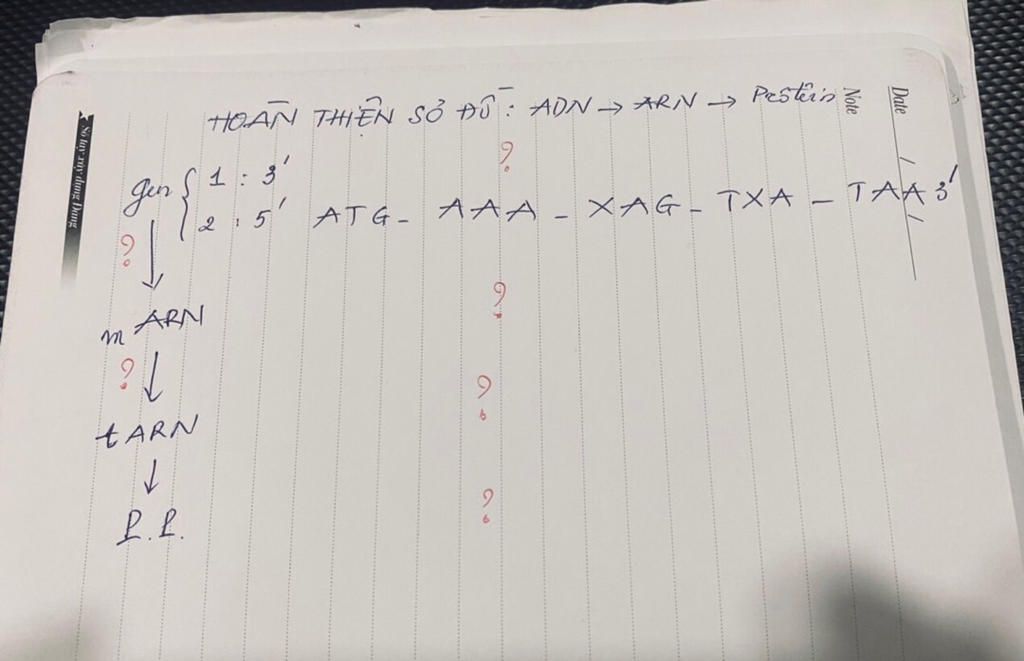 Date
Note
Sổ tay xây dựng Đảng
HOÀN THIỆN SƠ ĐỒ: ADN → ARN → Prôtêin
gen { 1 : 3' ?
2 : 5' ATG - AAA - XAG - TXA - TAA 3'
?
mARN ?
?
tARN ?
P.P. ?